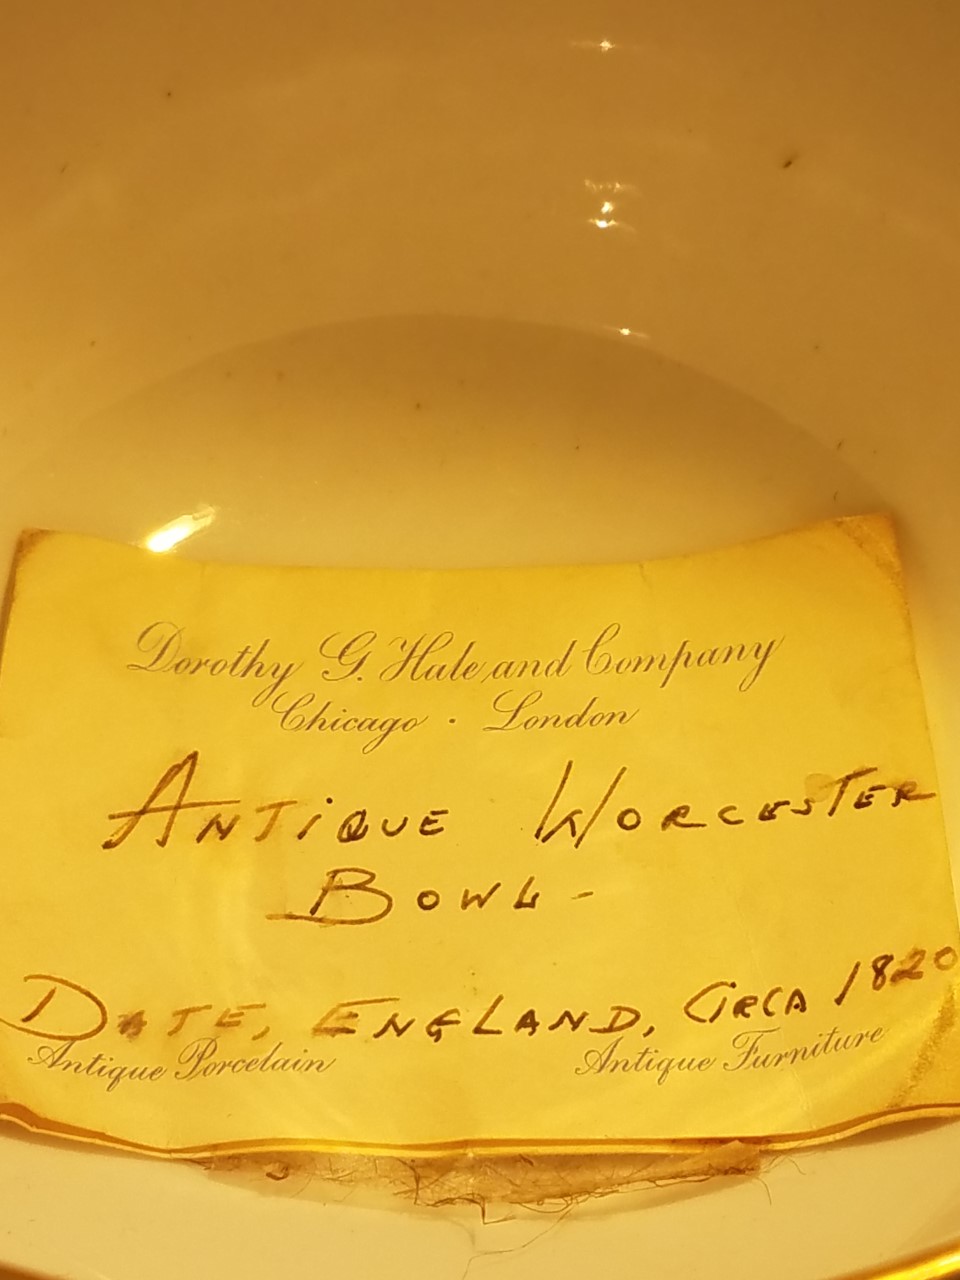 Dorothy G. Hale and Company
Chicago · London
ANTiQUE WORCESTER
BOWL -
DATE, ENGLAND, CiRCA 1820
Antique Porcelain Antique Furniture